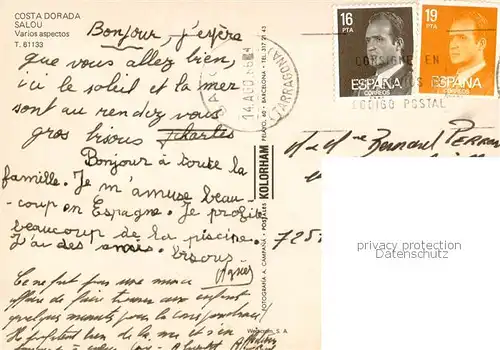 COSTA DORADA
SALOU
Varios aspectos
T. 61133
Bonjour, j'espère
que vous allez bien,
ici le soleil et la mer
sont au rendez vous
gros bisous Charles
Bonjour à toute la
famille. Je m'amuse beau-
coup en Espagne. Je profite
beaucoup de la piscine.
J'ai des amis. bisous
Agnès
Ce ne fut pas une mince
affaire de faire tenir aux enfants
quelques minutes pour la correspondance!
Ils profitent bien de la mer et s'en
FOTOGRAFIA A. CAMPAÑA - POSTALES KOLORHAM
BARCELONA
14 AGO
(TARRAGONA)
16
PTA
ESPAÑA
CORREOS
19
PTA
ESPAÑA
CORREOS
CONSIGNE EN
CODIGO POSTAL
M et Me Bernard
725
privacy protection
datenschutz